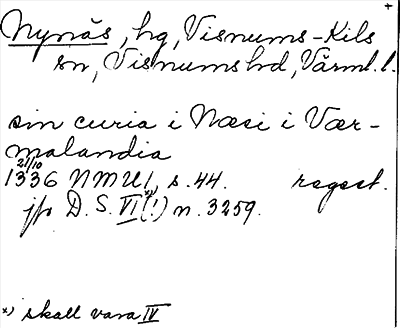 +
Nynäs, hg, Visnums-Kils
sn, Visnums hd, Värml. l.
sin curia i Næsi i Vær-
malandia
21/10
1336 NMU 1, s. 44. regest.
jfr D. S. VI x) (!) n. 3259.
x) skall vara IV